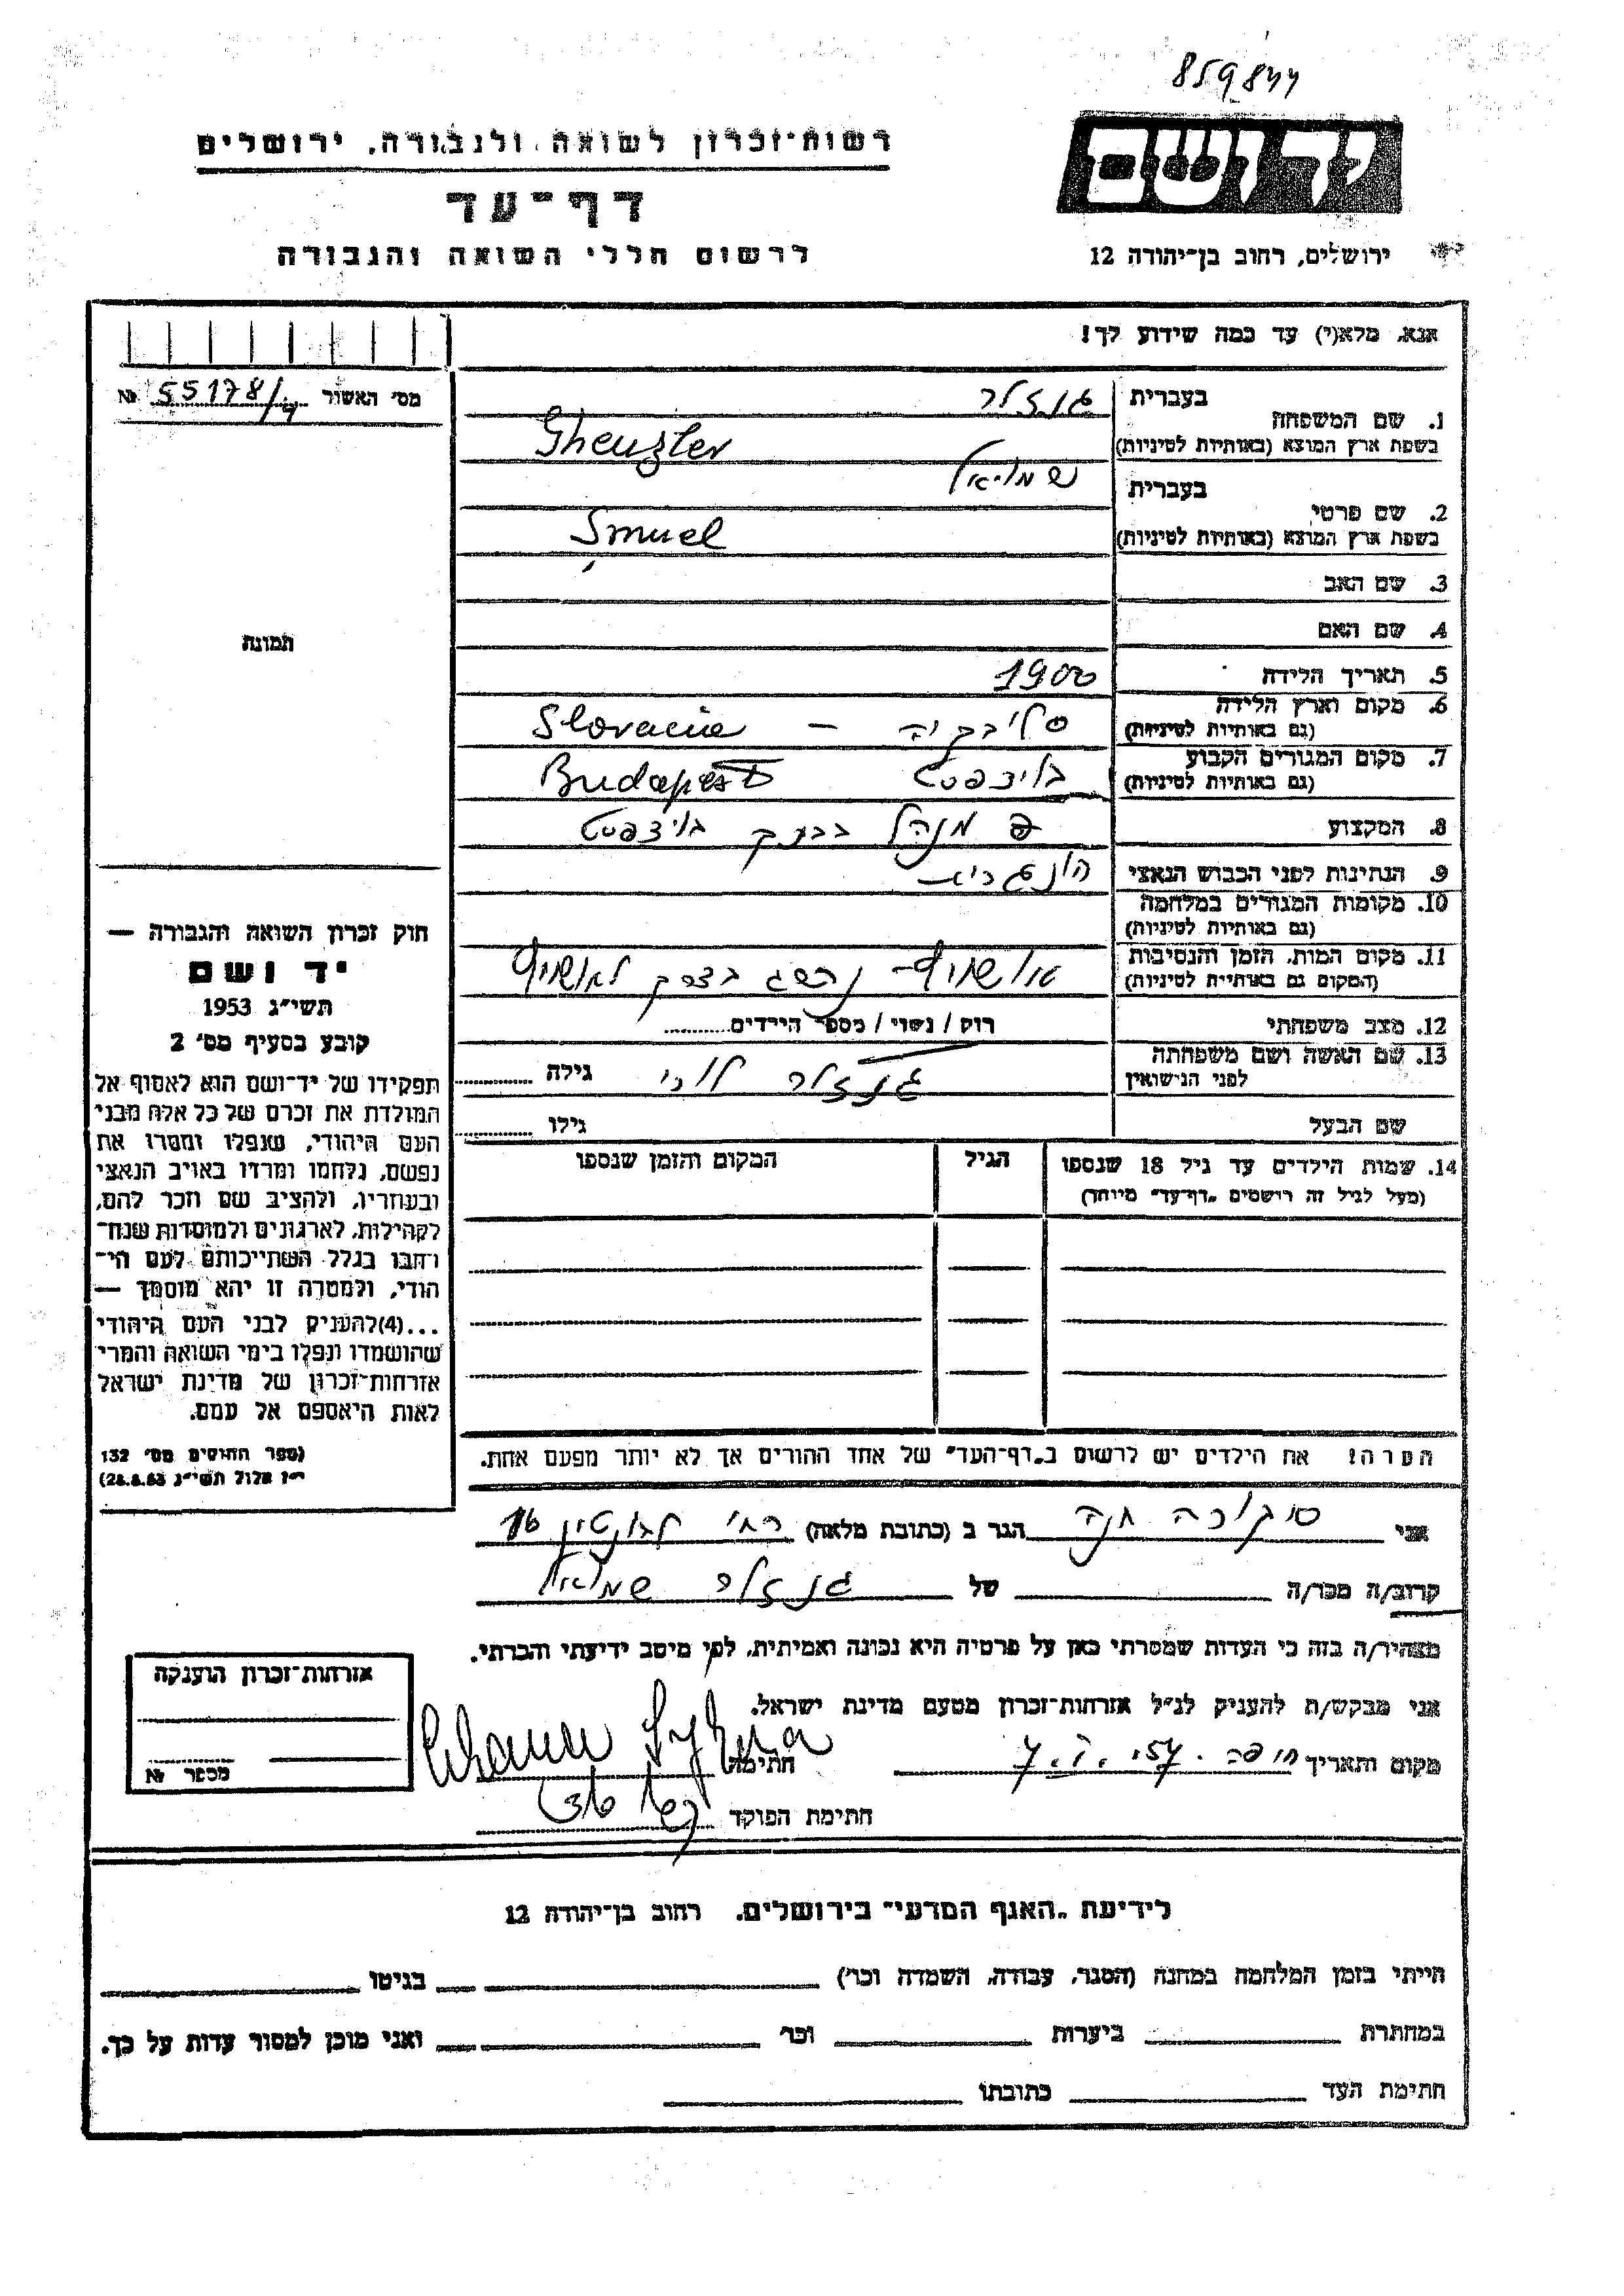 859844
ידושם
רשות־זכרון לשואה ולגבורה, ירושלים
דף־עד
לרשום חללי השואה והגבורה
ירושלים, רחוב בן־יהודה 12
אנא, מלא(י) עד כמה שידוע לך!
מס׳ האשור 55178/ №
1. שם המשפחה
בעברית גנזלר
בשפת ארץ המוצא (באותיות לטיניות) Gheuzler
2. שם פרטי
בעברית שמואל
בשפת ארץ המוצא (באותיות לטיניות) Smuel
3. שם האב
4. שם האם
תמונה
5. תאריך הלידה 1900
6. מקום וארץ הלידה (גם באותיות לטיניות) סלובקיה – Slovacia
7. מקום המגורים הקבוע (גם באותיות לטיניות) בודפסט Budapest
8. המקצוע מנהל בבנק בודפסט
9. הנתינות לפני הכבוש הנאצי הונגרית
10. מקומות המגורים במלחמה (גם באותיות לטיניות)
11. מקום המות, הזמן והנסיבות (המקום גם באותיות לטיניות) אושויץ – בדרך לאושויץ
12. מצב משפחתי רווק / נשוי / מספר הילדים
13. שם האשה ושם משפחתה לפני הנישואין גנזלר גילה
שם הבעל גילו
14. שמות הילדים עד גיל 18 שנספו
(מעל לגיל זה רישמים "דף־עד" מיוחד)
הגיל
המקום והזמן שנספו
חוק זכרון השואה והגבורה —
יד ושם
תשי״ג 1953
קובע בסעיף מס׳ 2
תפקידו של יד־ושם הוא לאסוף אל
המולדת את זכרם של כל אלה מבני
העם היהודי, שנפלו ומסרו את
נפשם, נלחמו ומרדו באויב הנאצי
ובעוזריו, ולהציב שם וזכר להם,
לקהילות, לארגונים ולמוסדות שנח־
רחבו בגלל השתייכותם לעם הי־
הודי, ולמטרה זו יהא מוסמך —
...(4)להעניק לבני העם היהודי
שהושמדו ונפלו בימי השואה והמרי
אזרחות־זכרון של מדינת ישראל
לאות היאספם אל עמם.
(ספר החוקים מס׳ 132
י״ז אלול תשי״ג 28.8.53)
הערה! את הילדים יש לרשום ב"דף־העד" של אחד ההורים אך לא יותר מפעם אחת.
אני חנה הגר ב (כתובת מלאה) רח׳ 16
קרוב/ה מכר/ה של גנזלר שמואל
מצהיר/ה בזה כי העדות שמסרתי כאן על פרטיה היא נכונה ואמיתית, לפי מיטב ידיעתי והכרתי.
אני מבקש/ת להעניק לנ״ל אזרחות־זכרון מטעם מדינת ישראל.
מקום ותאריך חיפה חתימה
חתימת הפוקד
אזרחות־זכרון הוענקה
מספר №
לידיעת "האגף המדעי" בירושלים. רחוב בן־יהודה 12
הייתי בזמן המלחמה במחנה (הסגר, עבודה, השמדה וכו׳) בגיטו
במחתרת ביערות וכו׳ ואני מוכן למסור עדות על כך.
חתימת העד כתובתו